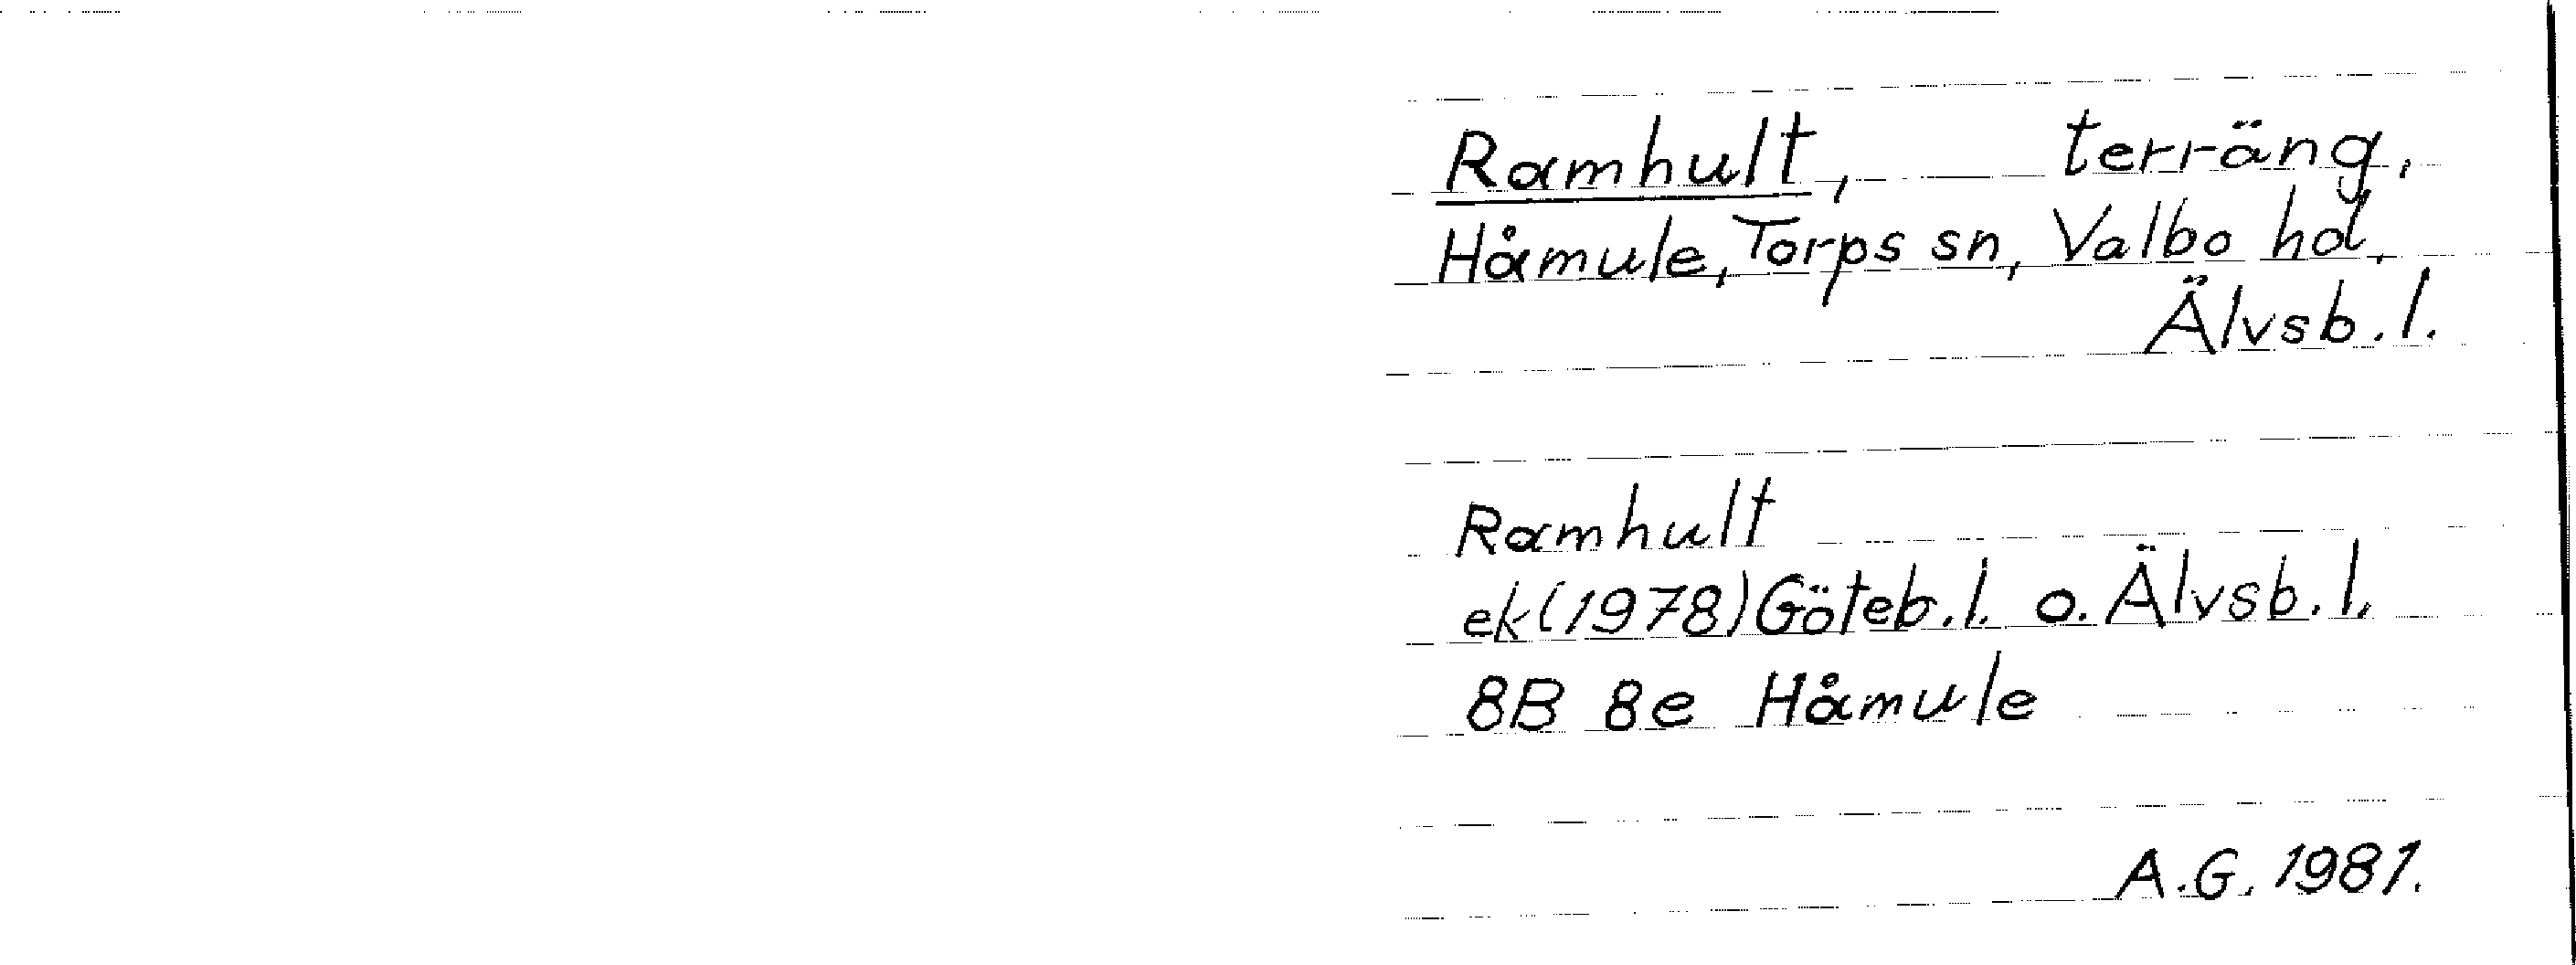 Ramhult, terräng,
Håmule, Torps sn, Valbo hd,
Älvsb. l.
Ramhult
ek (1978) Göteb. l. o. Älvsb. l.
8B 8e Håmule
A.G. 1981.